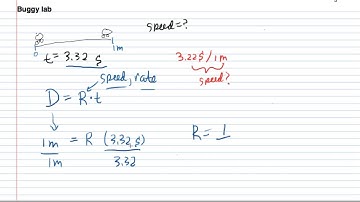 Buggy lab
speed=?
0 1m
t= 3.32 s
3.22s/1m
speed?
speed, rate
D = R·t
1m = R (3.32 s)
1m 3.32
R= 1